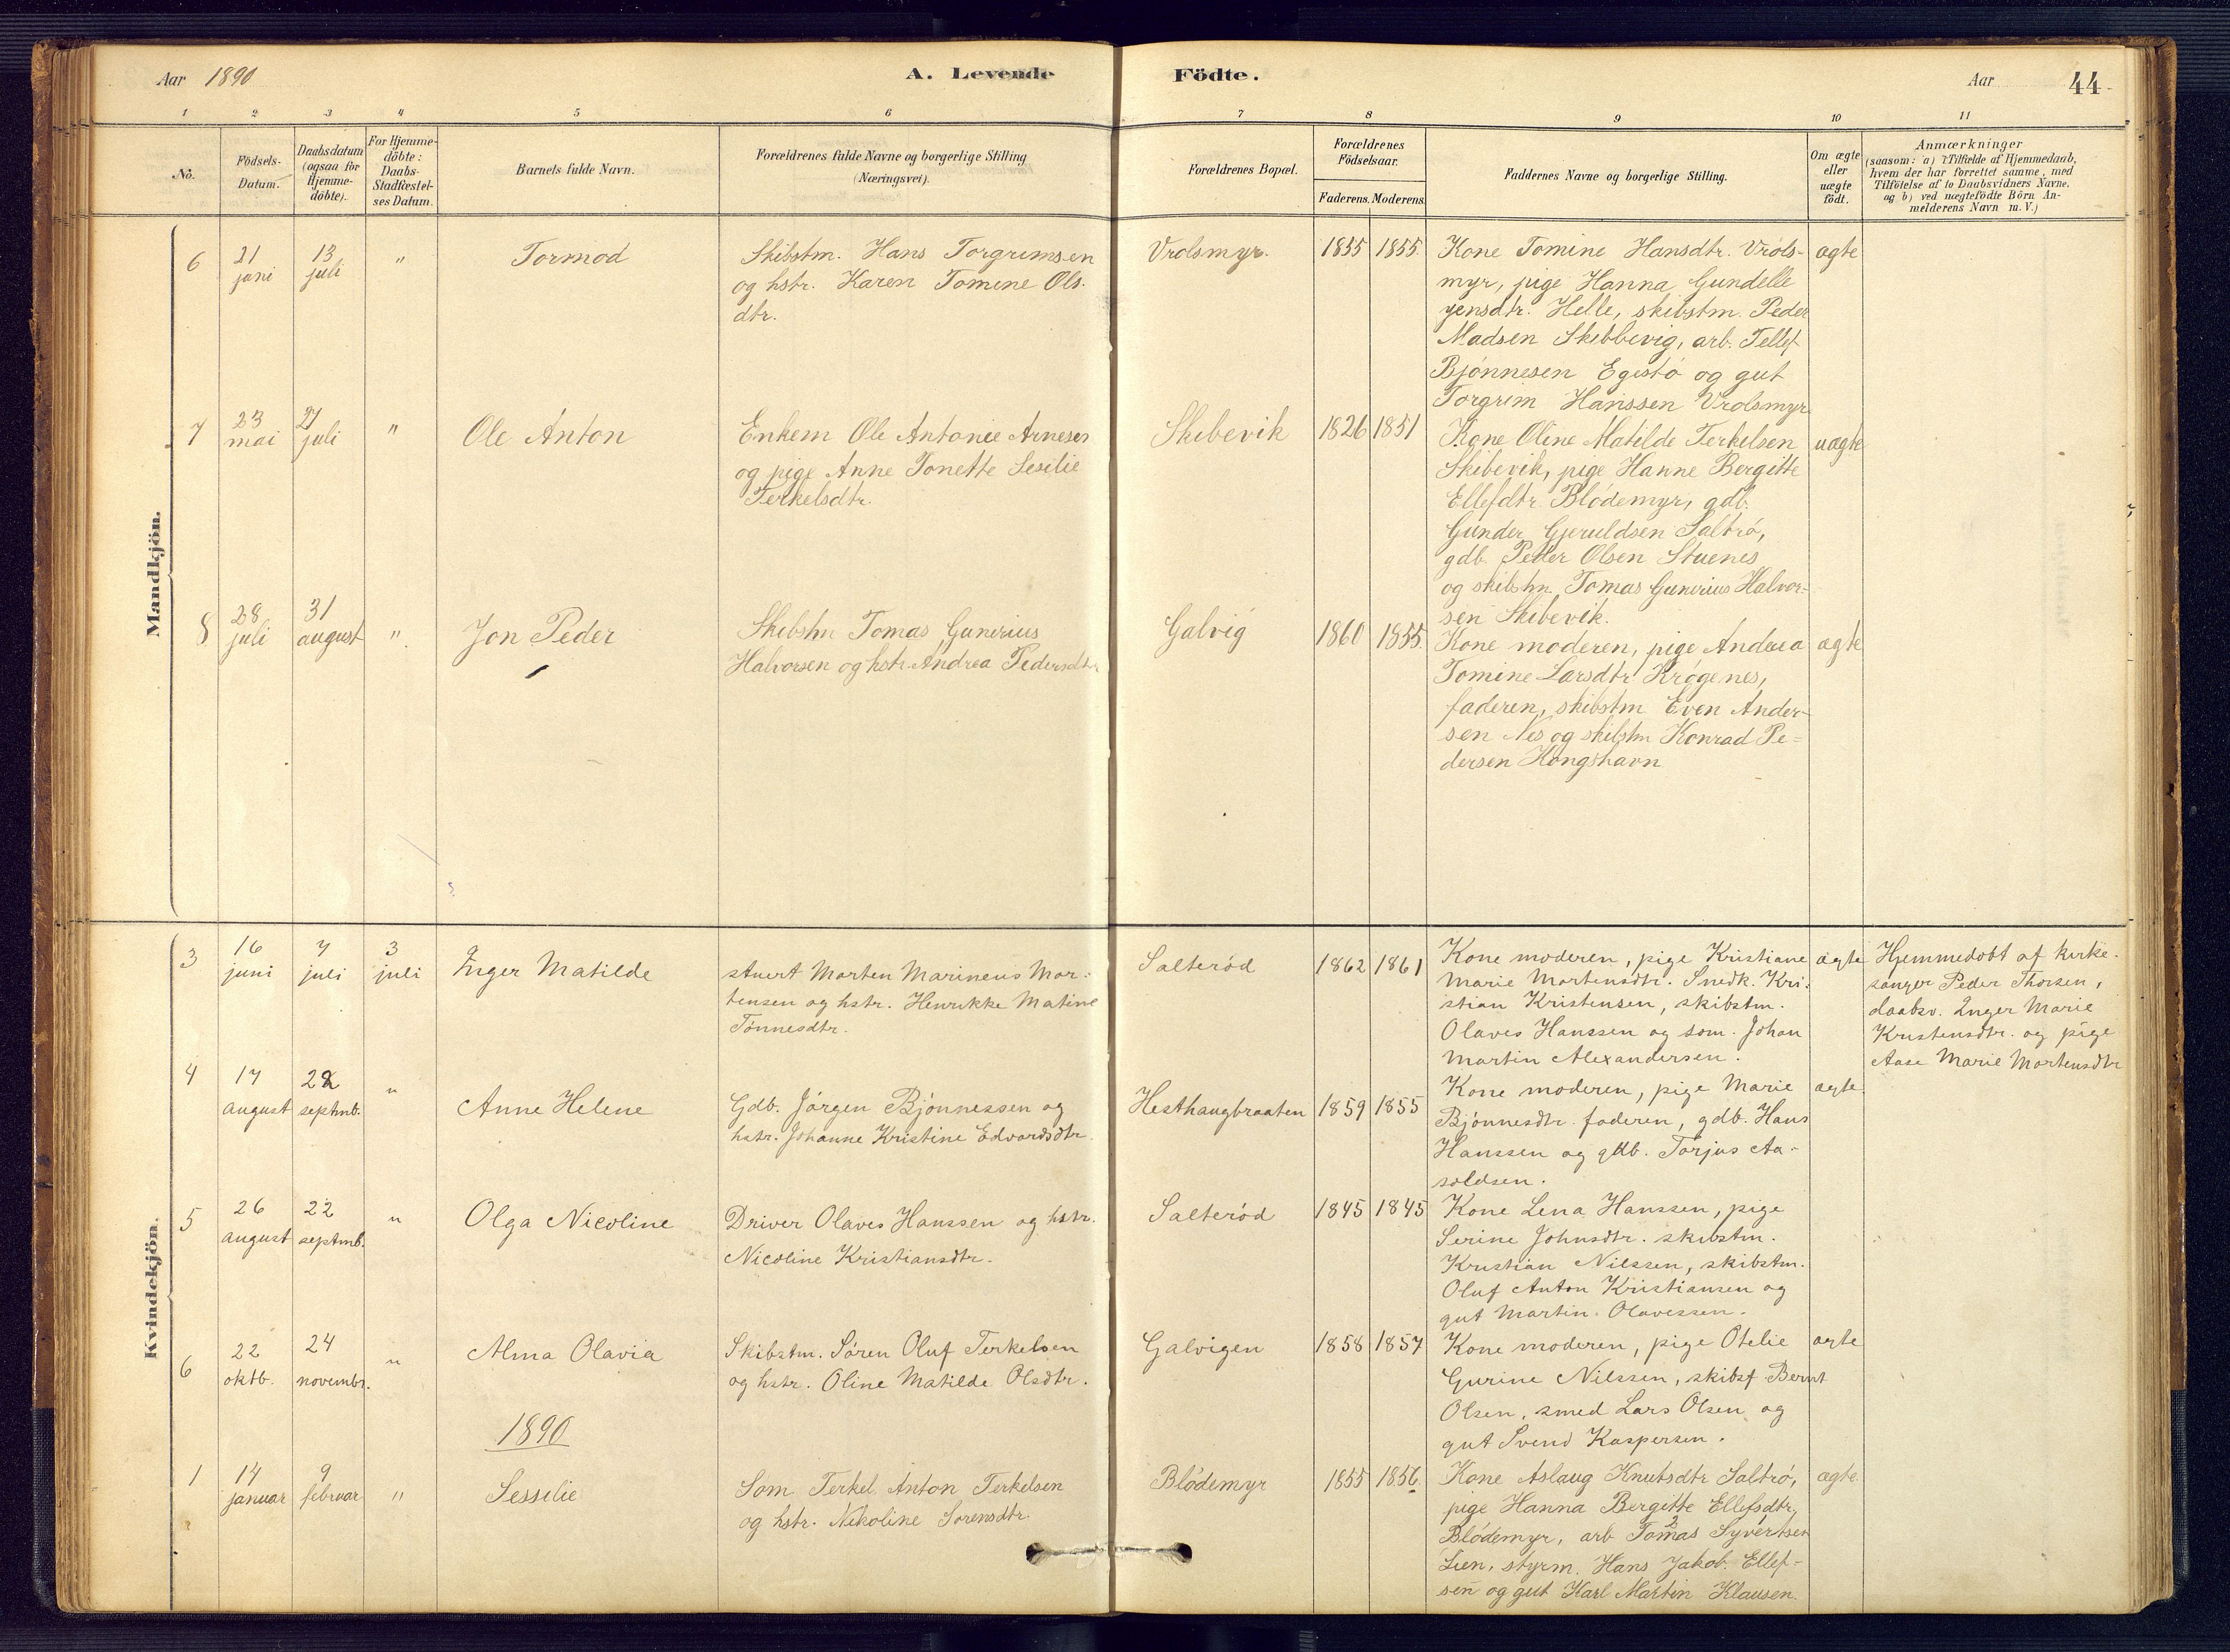 Aar 1890
A. Levende Födte.
Aar
44
1 2 3 4 5 6 7 8 9 10 11
No.
Födsels-
Datum.
Daabsdatum
(ogsaa for
Hjemme-
döbte).
For Hjemme-
döbte:
Daabs-
Stadfæstel-
ses Datum.
Barnets fulde Navn.
Forældrenes fulde Navne og borgerlige Stilling
(Næringsvei).
Forældrenes Bopæl.
Forældrenes
Födselsaar.
Faderens. Moderens.
Faddernes Navne og borgerlige Stilling.
Om ægte
eller
uægte
födt.
Anmærkninger
(saasom: a) i Tilfælde af Hjemmedaab,
hvem der har forrettet samme, med
Tilföielse af to Daabsvidners Navne.
og b) ved uægtefödte Börn An-
melderens Navn m. V.)
Mandkjön.
6
21
juni
13
juli
"
Tormod
Skibstm. Hans Torgrimsen
og hstr. Karen Tomine Ols.
dtr.
Vrolsmyr.
1855
1855.
Kone Tomine Hansdtr. Vrols-
myr, pige Hanna Gundelle
Jensdtr. Helle, skibstm. Peder
Madsen Skibbevig, arb. Tellef
Bjönnesen Egestö og gut
Torgrim Hanssen Vrolsmyr.
ægte
7
23
mai
27
juli
"
Ole Anton
Enkem Ole Antonie Arnesen
og pige Anne Tonette Sesilie
Terkelsdtr.
Skibevik
1826
1851
Kone Oline Matilde Terkelsen
Skibevik, pige Hanne Bergitte
Ellefdtr Blödemyr, gdb.
Gunder Gjeruldsen Saltrö,
gdb. Peder Olsen Stuenes
og skibstm Tomas Gunerius Halvor-
sen Skibevik.
uægte
8
28
juli
31
august
"
Jon Peder
Skibstm Tomas Gunerius
Halvorsen og hstr. Andrea Pedersdtr.
Galvig
1860
1855.
Kone moderen, pige Andrea
Tomine Larsdtr Krögenes,
faderen, skibstm Even Ander-
sen Nes og skibstm Konrad Pe-
dersen Kongshavn
ægte
Kvindekjön.
3
16
juni
7
juli
3
juli
Inger Matilde
stuert Morten Marineus Mor-
tensen og hstr. Henrikke Matine
Tönnesdtr.
Salteröd
1862
1861
Kone moderen, pige Kristiane
Marie Mortensdtr. Snedk. Kri-
stian Kristensen, skibstm.
Olaves Hanssen og söm. Johan
Martin Alexandersen.
ægte
Hjemmedöbt af kirke-
sanger Peder Thorsen,
daabsv. Inger Marie
Kristensdtr. og pige
Aase Marie Mortensdtr
4
17
august
22
septmb.
"
Anne Helene
Gdb. Jörgen Bjönnessen og
hstr. Johanne Kristine Edvardsdtr.
Hesthaugbraaten
1859
1855
Kone moderen, pige Marie
Bjönnesdtr. faderen, gdb. Hans
Hanssen og gdb. Torjus Aa-
soldsen.
ægte
5
26
august
22
septmb.
"
Olga Nicoline
Driver Olaves Hanssen og hstr.
Nicoline Kristiansdtr.
Salteröd
1845
1845
Kone Lena Hanssen, pige
Serine Johnsdtr. skibstm.
Kristian Nilssen, skibstm.
Oluf Anton Kristiansen og
gut Martin Olavessen.
6
22
oktb.
24
novembr.
"
Alma Olavia
Skibstm. Sören Oluf Terkelsen
og hstr. Oline Matilde Olsdtr.
Galvigen
1858
1857
Kone moderen, pige Otelie
Gurine Nilssen, skibsf Bernt
Olsen, smed Lars Olsen og
gut Svend Kaspersen.
ægte
1890
1
14
januar
9
februar
"
Sessilie
Söm Terkel Anton Terkelsen
og hstr. Nikoline Sörensdtr.
Blödemyr
1855
1856.
Kone Aslaug Knutsdtr Saltrö,
pige Hanna Bergitte Ellefsdtr,
Blödemyr, arb Tomas Syvertsen
Lien, styrm. Hans Jakob Ellef-
sen og gut Karl Martin Klausen.
ægte